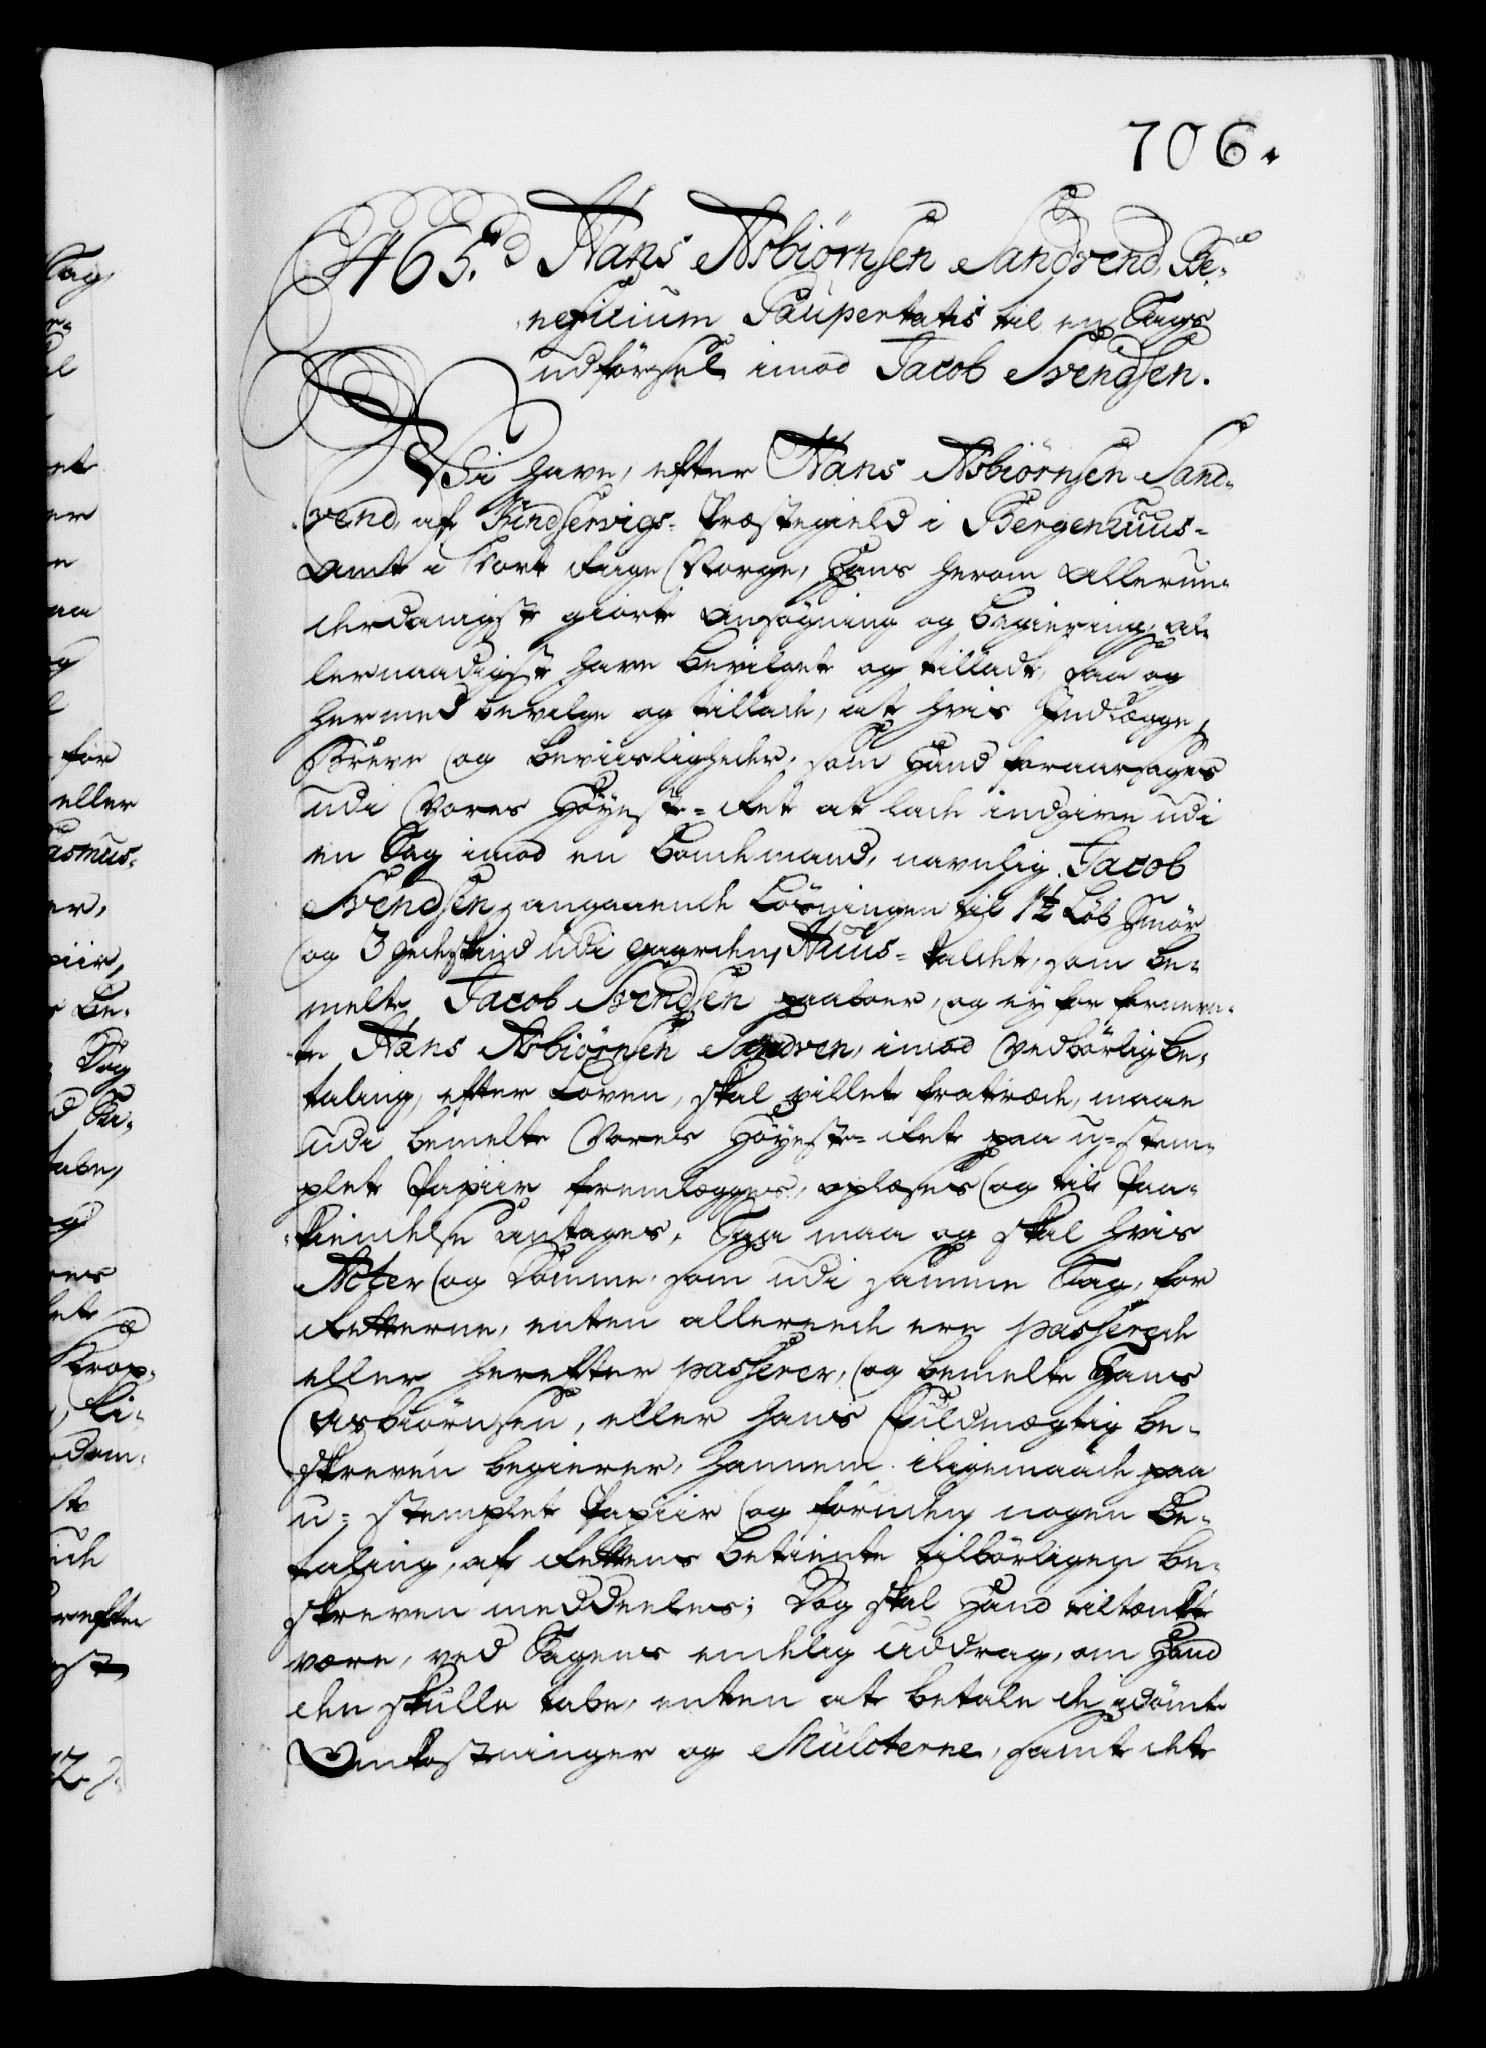 706.
465. Hans Asbiørnsen Sandvend, Be-
neficium Paupertatis til en Sags
udførsel imod Jacob Svendsen.
Vi have, efter Hans Asbiørnsen Sand-
vend, af Kindservigs-Præstegield i Bergenhuus-
Amt i Vort Rige Norge, Hans herom allerun-
derdanigst giorte Ansøgning og Begiering, al-
lernaadigst have bevilget og tilladt, saa og
hermed bevilge og tillade, at hvis Indlægge,
Breve og Beviisligheder, som Hand foraarsages
udi Vores Høyeste-Ret at lade indgive udi
en Sag imod en Bondemand, navnlig Jacob
Svendsen, angaaende Løsningen til 1½ Løb Smør
og 3 Gedeskind udi Gaarden, Huus- kaldet, som be-
melte Jacob Svendsen paaboer, og ey for fornevn-
te Hans Asbiørnsen Sandven, imod vedbørlig be-
taling, efter Loven, skal villet fratræde, maae
udi bemelte Vores Høyeste-Ret paa u-stem-
plet Papiir fremlægges, oplæses og til Paa-
kiendelse antages, Saa maa og skal hvis
Acter og Domme, som udi samme Sag, for
Retterne, enten allereede ere passerede
eller herefter passerer, og bemelte Hans
Asbiørnsen, eller hans Fuldmægtig be-
skreven begierer, hannem iligemaade paa
u-stemplet Papiir og foruden nogen Be-
taling, af Rettens Betiente tilbørligen be-
skreven meddeeles; Dog skal Hand tiltænkt
være, ved Sagens endelig Uddrag, om Hand
den skulle tabe, enten at betale de idømte
Omkostninger og Mulcterne, samt det